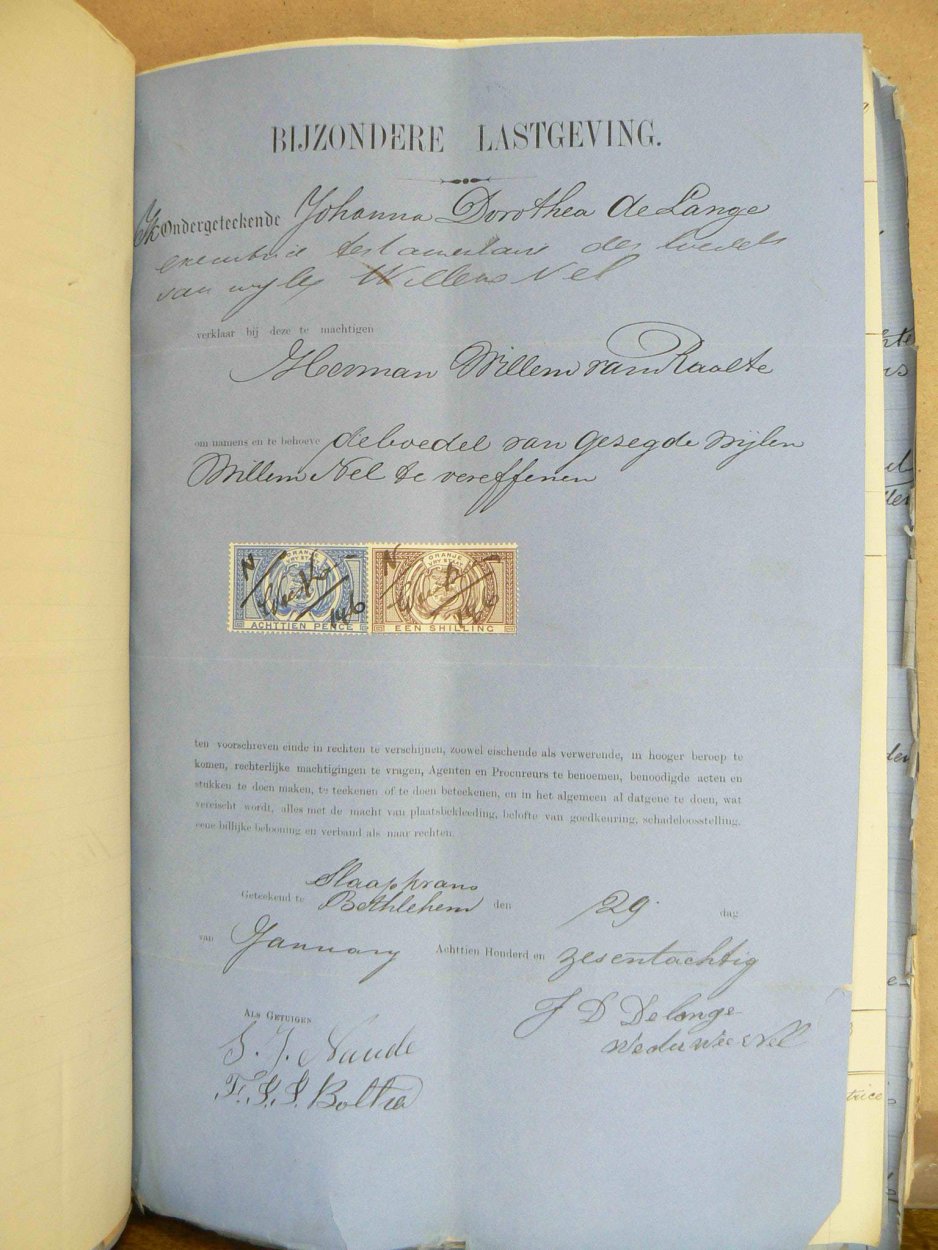 BIJZONDERE LASTGEVING.
Ik Ondergeteekende Johanna Dorothea de Lange
executrice testamentaire des boedels
van wijlen Willem Nel
verklaar bij deze te machtigen
Herman Willem van Raalte
om namens en te behoeve de boedel van gezegde wijlen
Willem Nel te vereffenen
ORANJE
VRY STAAT
ACHTTIEN PENCE
ORANJE
VRY STAAT
EEN SHILLING
ten voorschreven einde in rechten te verschijnen, zoowel eischende als verwerende, in hooger beroep te
komen, rechterlijke machtigingen te vragen, Agenten en Procureurs te benoemen, benoodigde acten en
stukken te doen maken, te teekenen of te doen beteekenen, en in het algemeen al datgene te doen, wat
vereischt wordt, alles met de macht van plaatsbekleeding, belofte van goedkeuring, schadeloosstelling,
eene billijke belooning en verband als naar rechten.
Slaapkrans
Geteekend te Bethlehem den 29 dag
van January Achttien Honderd en zesentachtig
J D De lange
Weduwee Nel
ALS GETUIGEN
S. J. Naude